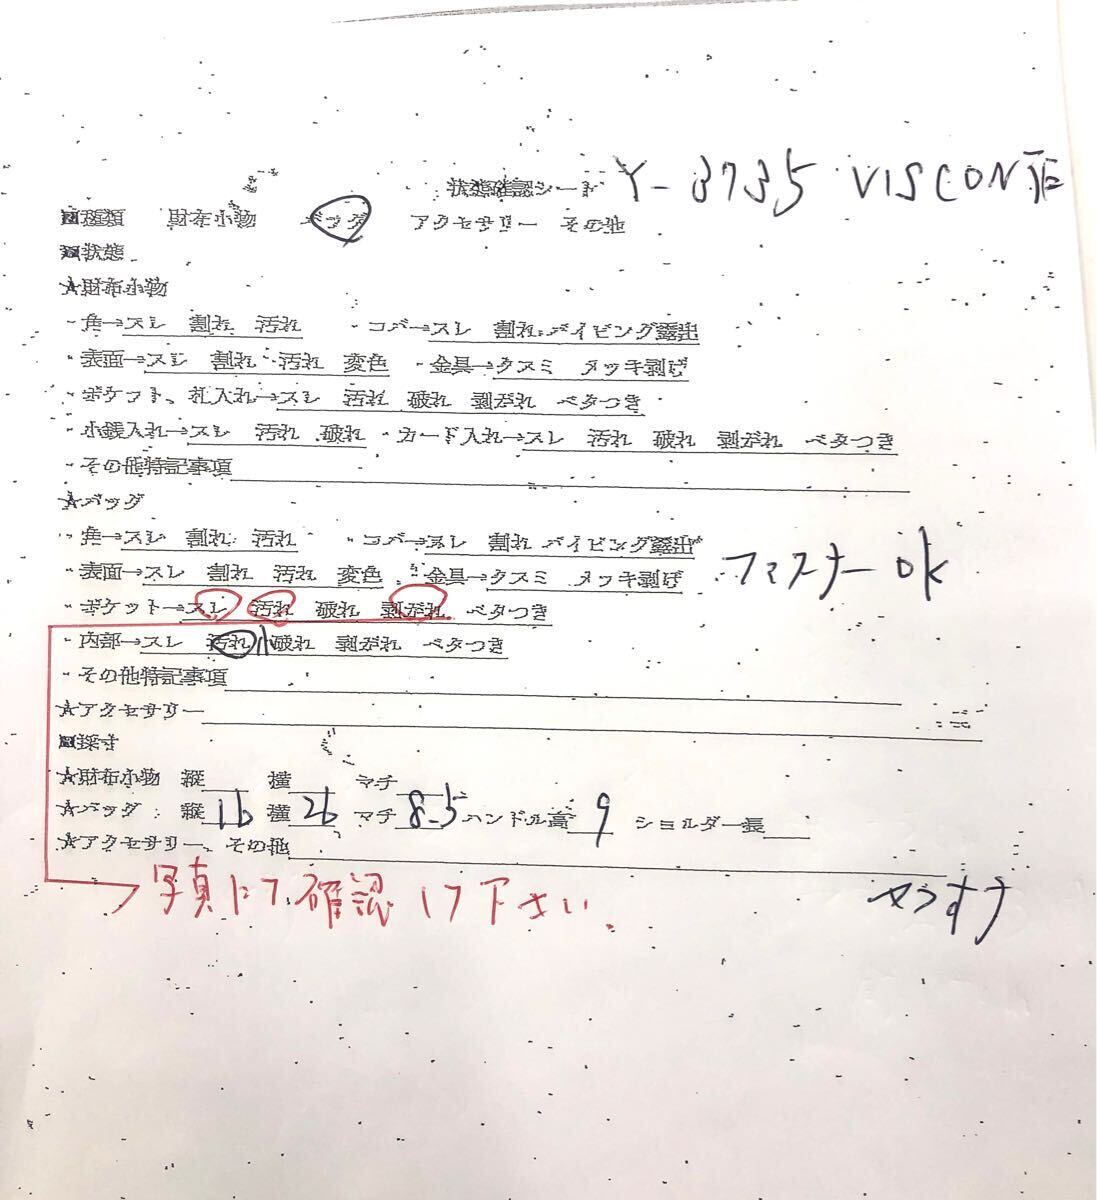 状態確認シート Y-3735 VISCONTI
■種類 財布小物 バッグ アクセサリー その他
■状態
★財布小物
・角→スレ 割れ 汚れ ・コバ→スレ 割れ パイピング露出
・表面→スレ 割れ 汚れ 変色 ・金具→クスミ メッキ剥げ
・ポケット、札入れ→スレ 汚れ 破れ 剥がれ ベタつき
・小銭入れ→スレ 汚れ 破れ ・カード入れ→スレ 汚れ 破れ 剥がれ ベタつき
・その他特記事項
★バッグ
・角→スレ 割れ 汚れ ・コバ→スレ 割れ パイピング露出
・表面→スレ 割れ 汚れ 変色 ・金具→クスミ メッキ剥げ ファスナー ok
・ポケット→スレ 汚れ 破れ 剥がれ ベタつき
・内部→スレ 汚れ 小 破れ 剥がれ ベタつき
・その他特記事項
★アクセサリー
■採寸
★財布小物 縦 横 マチ
★バッグ 縦 16 横 26 マチ 8.5 ハンドル高 9 ショルダー長
★アクセサリー、その他
写真にて確認して下さい。